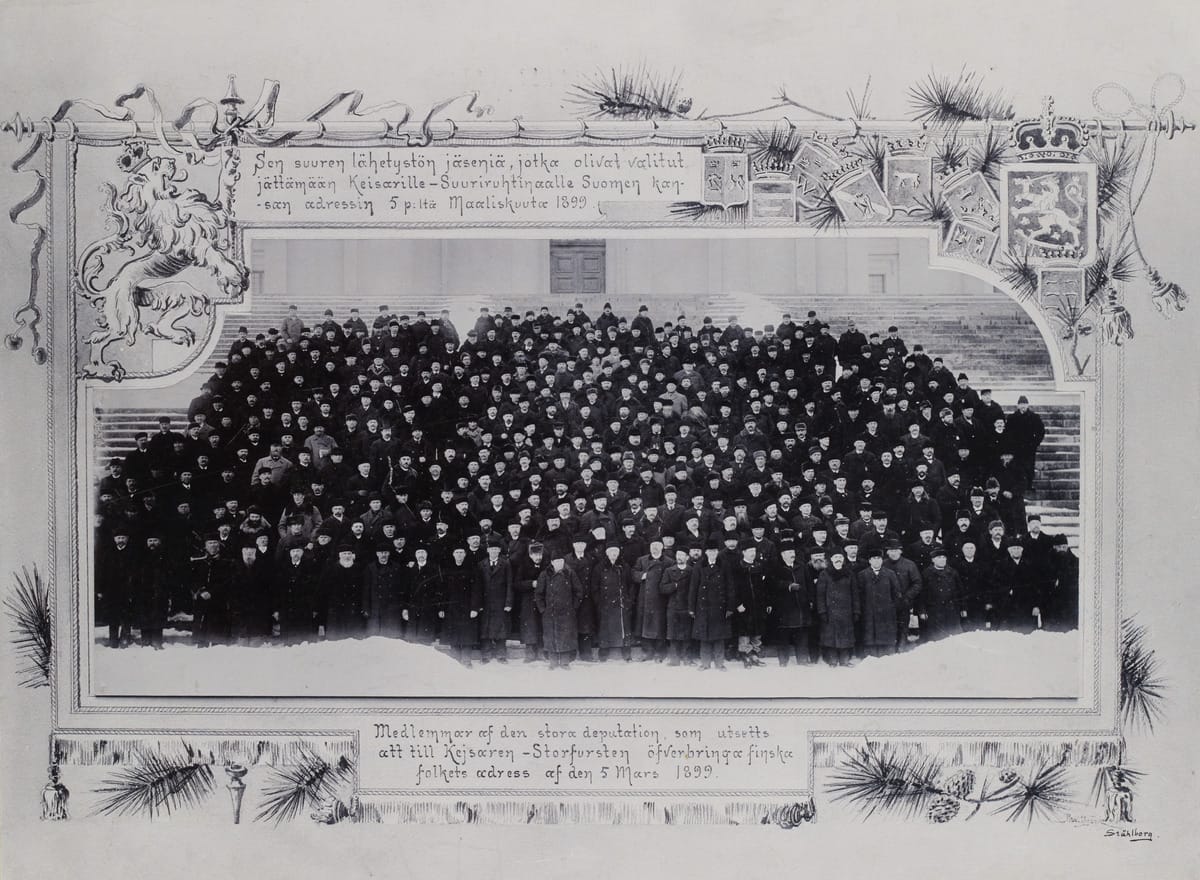 Sen suuren lähetystön jäseniä, jotka olivat valitut
jättämään Keisarille-Suuriruhtinaalle Suomen kan-
-san adressin 5 p:ltä Maaliskuuta 1899.
Medlemmar af den stora deputation, som utsetts
att till Kejsaren-Storfursten öfverbringa finska
folkets adress af den 5 Mars 1899.
Ståhlberg.